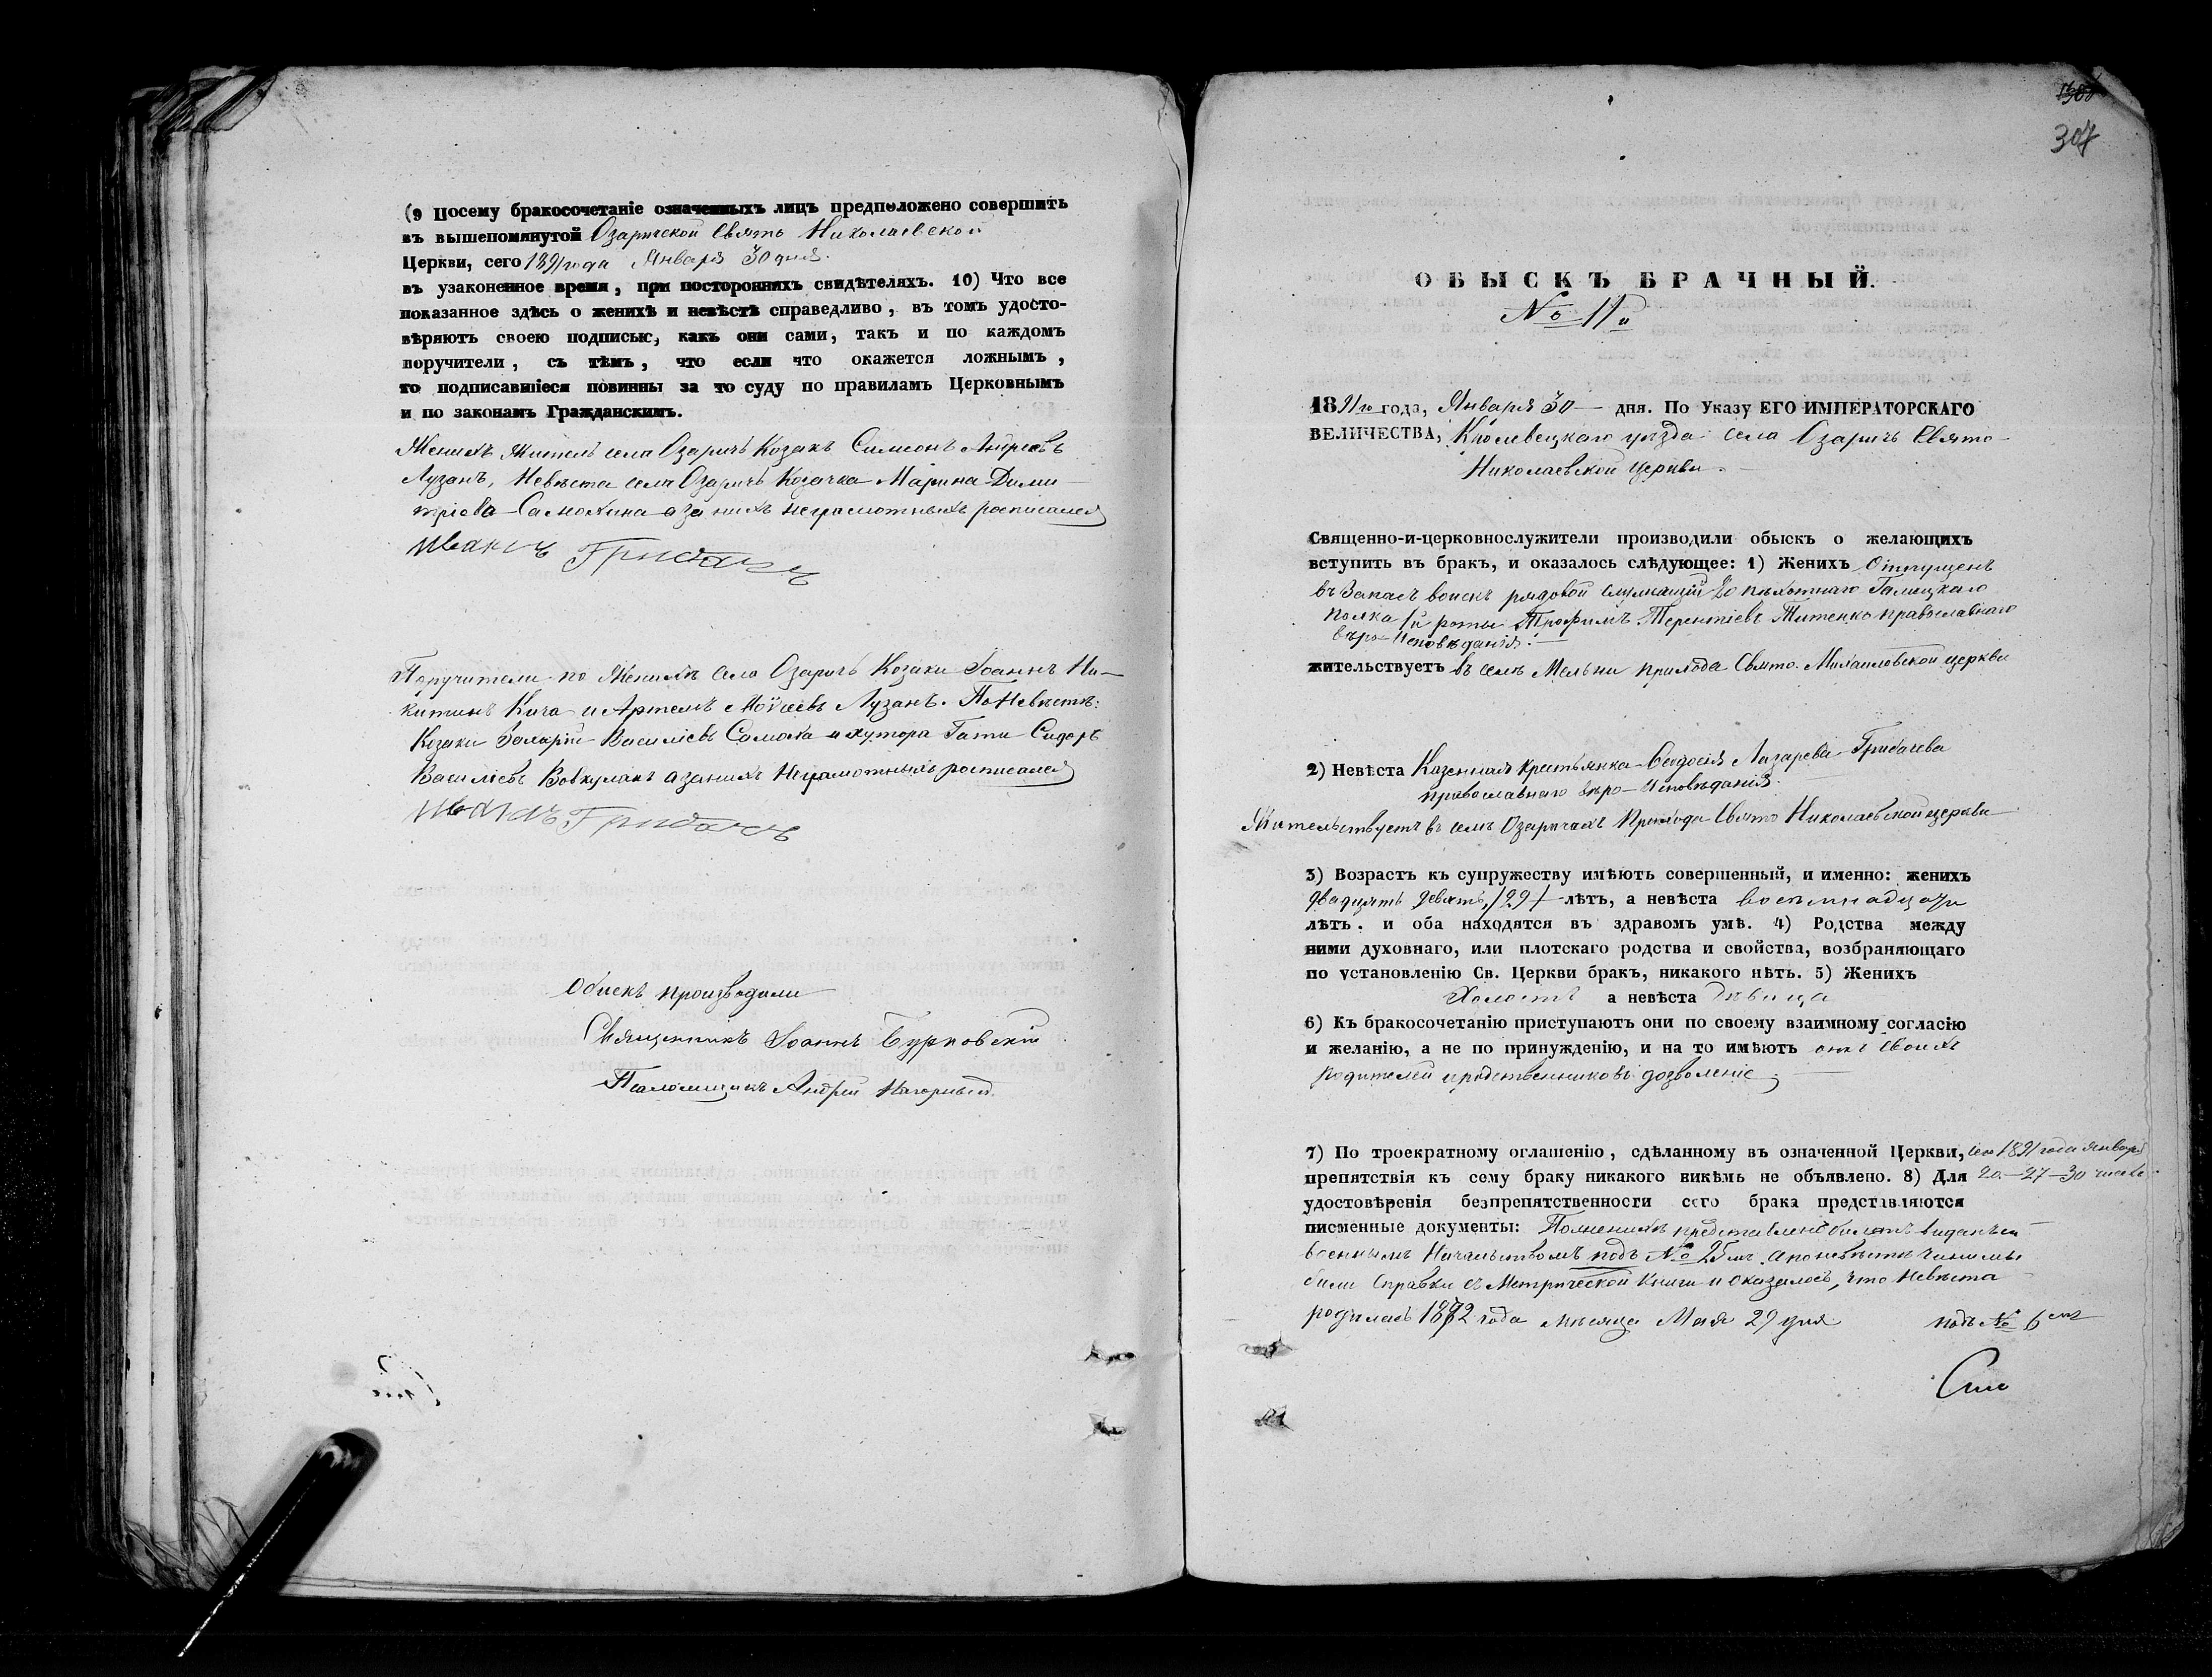 (9 Посему бракосочетаніе означенныхъ лицъ предположено совершить
въ вышепомянутой Озарической Свято Николаевской
Церкви, сего 1891 года Января 30 дня.
въ узаконенное время, при постороннихъ свидѣтеляхъ. 10) Что все
показанное здѣсь о женихѣ и невѣстѣ справедливо, въ томъ удосто-
вѣряютъ своею подписью, какъ они сами, такъ и по каждомъ
поручители, съ тѣмъ, что если что окажется ложнымъ,
то подписавшіеся повинны за то суду по правиламъ Церковнымъ
и по законамъ Гражданскимъ.
Женихъ житель села Озаричъ Козакъ Симеонъ Андреевъ
Лузанъ, Невѣста села Озаричъ Козачка Марина Дими-
тріева Самохина а за нихъ неграмотныхъ росписался
Иванъ
Поручители по Женихѣ села Озаричъ Козаки Іоаннъ Ни-
китинъ Кича и Артемъ Моѵсеевъ Лузанъ. По Невѣстѣ:
Козаки Захарій Василіевъ Самоха и хутора Гати Сидоръ
Василіевъ Вовкулакъ а за нихъ Неграмотныхъ росписался
Обыскъ производили
Священникъ Іоаннъ Бурковскій
Псаломщикъ Андрей Нагорный
307
ОБЫСКЪ БРАЧНЫЙ.
№ 11й
1891го года, Января 30 дня. По Указу ЕГО ИМПЕРАТОРСКАГО
ВЕЛИЧЕСТВА, Кролевецкаго уѣзда села Озаричъ Свято-
Николаевской церкви.
Священно-и-церковнослужители производили обыскъ о желающихъ
вступить въ бракъ, и оказалось слѣдующее: 1) Женихъ Отпущенъ
въ Запасъ воискъ рядовой служащій 20 пѣхотнаго Галицкаго
полка роты Трофимъ Терентіевъ Титенко православнаго
вѣро-Исповѣданія.
жительствуетъ въ селѣ Мельни прихода Свято-Михаиловской церкви
2) Невѣста Казенная крестьянка Ѳеодосія Лазарева Грибачева
православнаго вѣро-Исповѣданія
Жительствуетъ въ селѣ Озаричахъ Прихода Свято Николаевской церкви
3) Возрастъ къ супружеству имѣютъ совершенный, и именно: женихъ
двадцять девять /29/ лѣтъ, а невѣста восемнадцати
лѣтъ. и оба находятся въ здравомъ умѣ. 4) Родства между
ними духовнаго, или плотскаго родства и свойства, возбраняющаго
по установленію Св. Церкви бракъ, никакого нѣтъ. 5) Женихъ
Холостъ а невѣста дѣвица
6) Къ бракосочетанію приступаютъ они по своему взаимному согласію
и желанію, а не по принужденію, и на то имѣютъ отъ своихъ
родителей и родственниковъ дозволеніе
7) По троекратному оглашенію, сдѣланному въ означенной Церкви, сего 1891 года января
препятствія къ сему браку никакого никѣмъ не объявлено. 8) Для 20—27—30 числъ
удостовѣренія безпрепятственности сего брака представляются
писменные документы: По женихѣ представленъ билетъ виданъ
военнымъ Начальствомъ подъ № 25мъ. а по невѣстѣ чинимы
были Справки съ Метрической книги и оказалось, что Невѣста
родилась 1872 года мѣсяца Мая 29 дня подъ № 6мъ